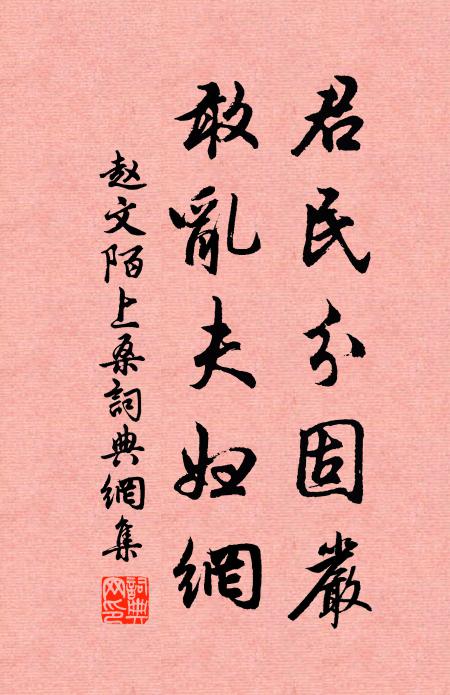 君民分固嚴
敢亂夫婦網
赵文陌上桑詞典網集
詞典网印